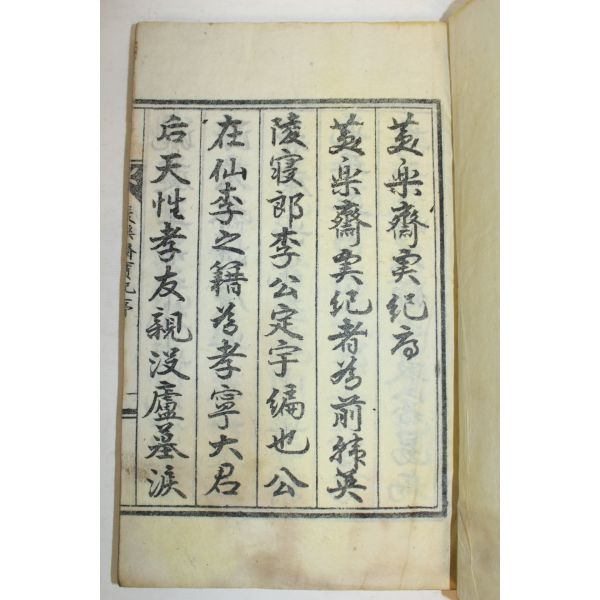 樂齋實紀序
樂齋實紀者為前韓英
陵寢郎李公定宇編也公
在仙李之籍為孝寧大君
后天性孝友親沒廬墓淚
樂齋實紀序 一